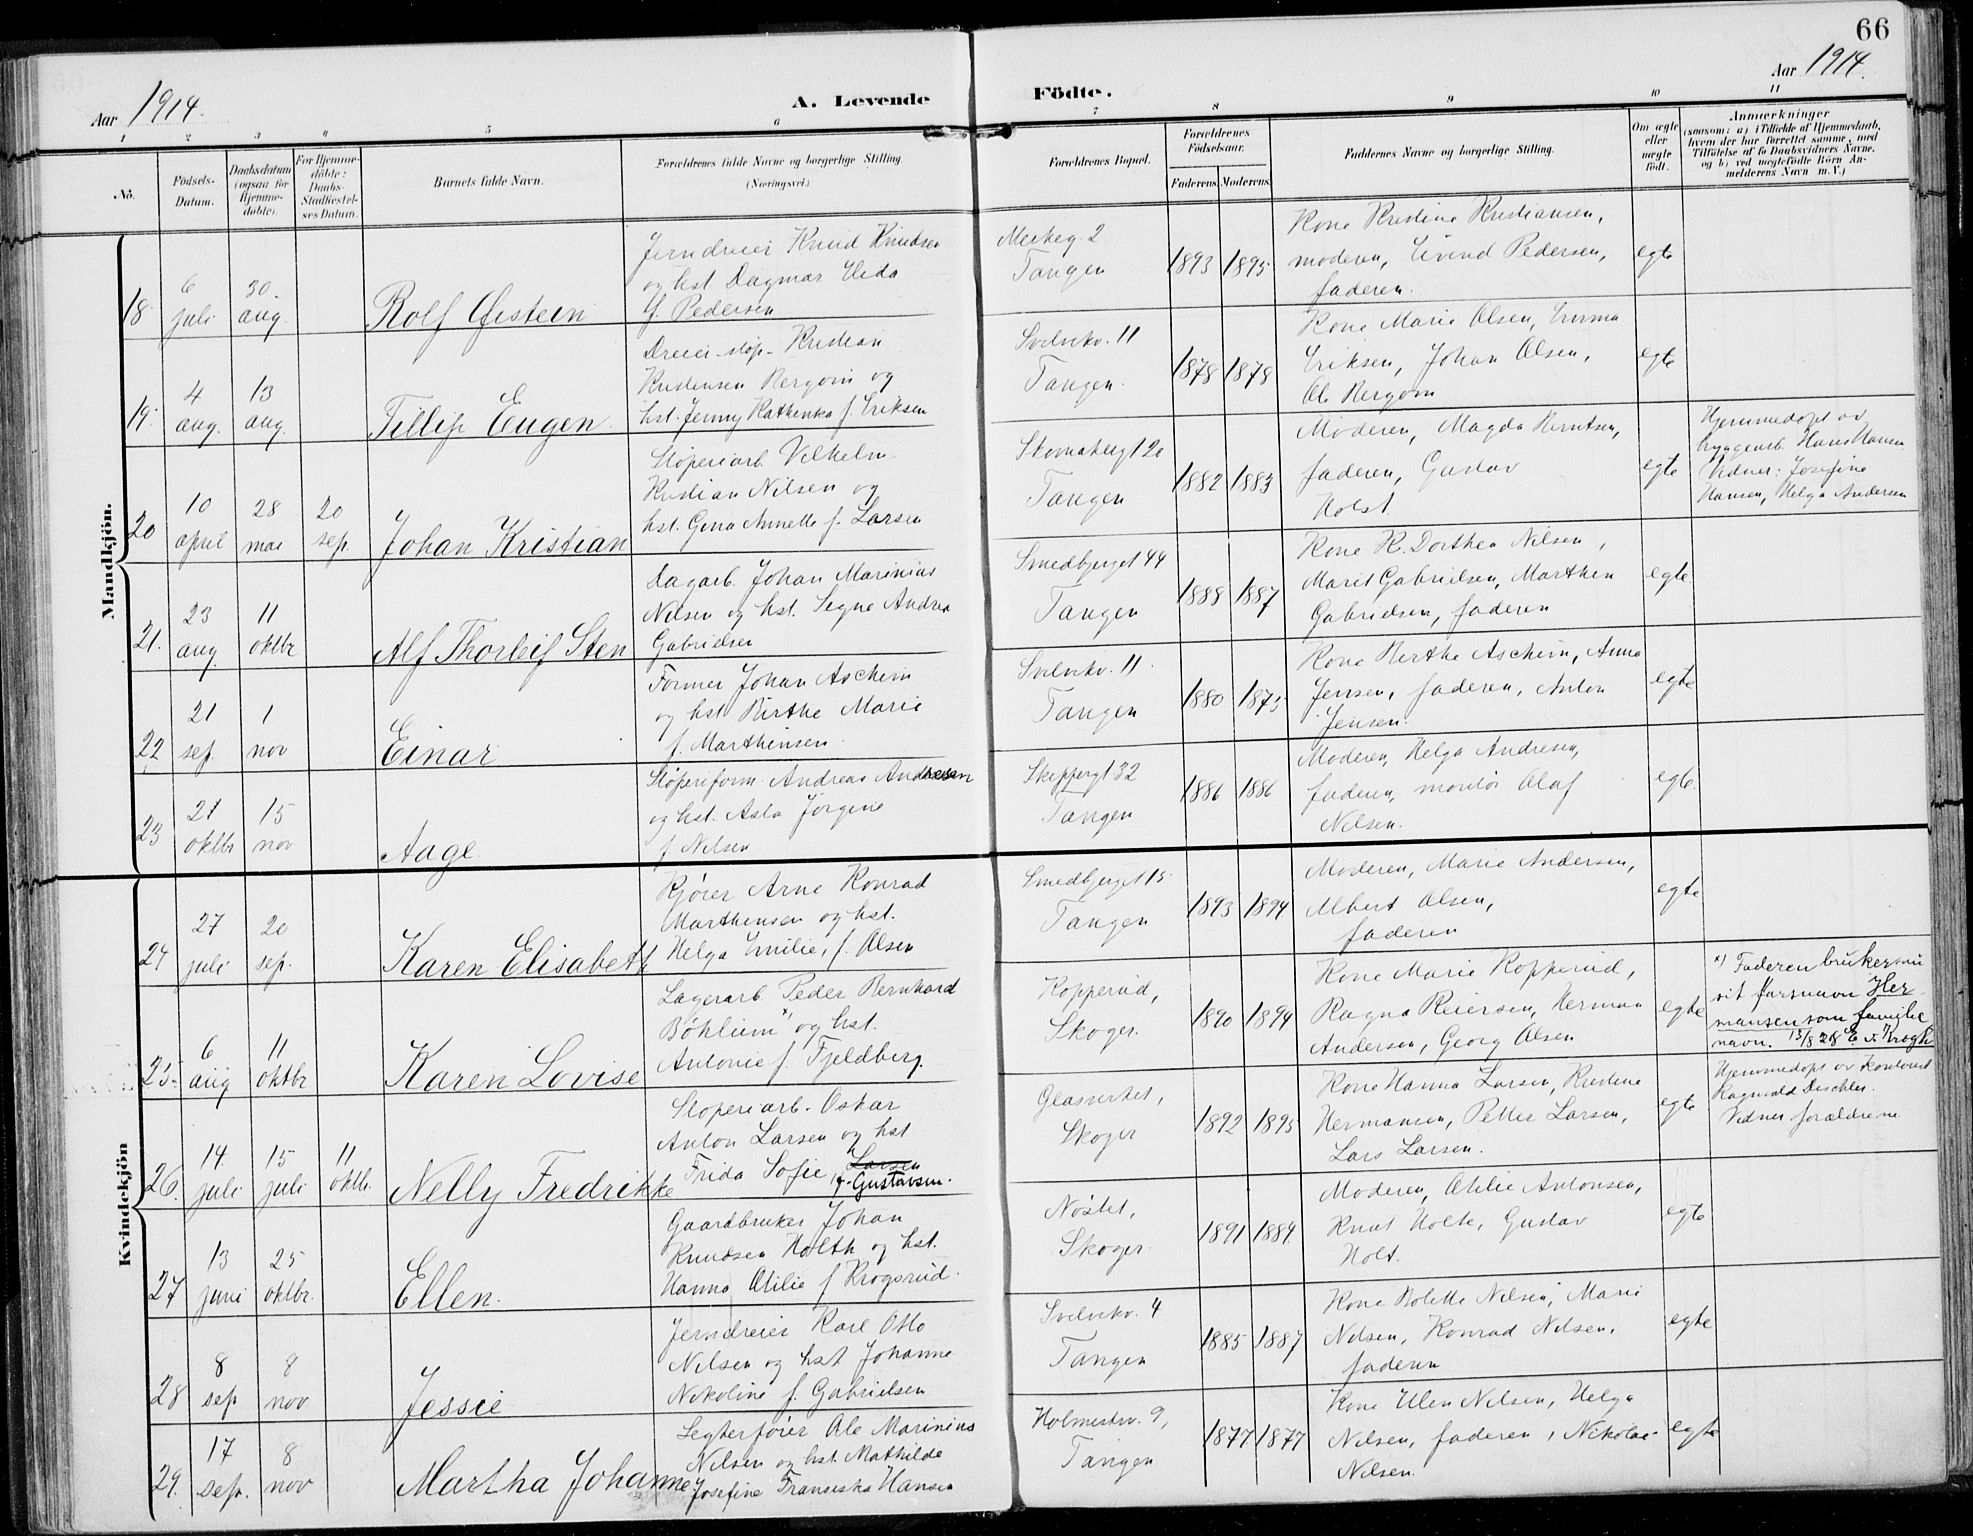 66
Aar 1914.
A. Levende
Födte.
Aar 1914.
1
2
3
4
5
6
7
8
9
10
11
No.
Födsels-
Datum.
Daabsdatum
(ogsaa for
Hjemme-
døbte).
For Hjemme-
døbte:
Daabs-
Stadfæstel-
ses Datum.
Barnets fulde Navn.
Forældrenes fulde Navne og borgerlige Stilling
(Næringsvei.)
Forældrenes Bopæl.
Forældrenes
Fødselsaar.
Faderens
Moderens
Faddernes Navne og borgerlige Stilling.
Om ægte
eller
uægte
født.
Anmærkninger
(saasom: a) i Tilfælde af Hjemmedaab,
hvem der har forrettet samme, med
Tilføielse af to Daabsvidners Navne,
og b) ved uegtefødte Börn An-
melderens Navn m. V.)
Mandkjön.
18.
6
juli
30
aug.
Rolf Øistein
Jerndreier Knud Knudsen
og hst Dagmar Heda
f. Pedersen
Tangen
1893
1895
Kone Kristine Kristiansen,
moderen, Eivind Pedersen,
faderen.
egte
19.
4
aug.
13
aug.
Fillip Eugen
Kristian
Kristensen Bergom og
hst. Jenny Kathinka f. Eriksen
Svelvikv. 11
Tangen.
1878
1878
Kone Marie Olsen, Emma
Eriksen, Johan Olsen,
Ole Bergom
egte
20
10
april
28
mai
20
sep.
Johan Kristian
Støperiarb. Vilhelm
Kristian Nilsen og
hst. Gina Annette f. Larsen
Tangen
1882
1883
Moderen, Magda Berntsen,
faderen, Gustav
Holst
egte
Hjemmedøpt av
byggearb. Hans Hansen
Vidner: Josefine
Hansen, Helga Andersen
21.
23
aug.
11
oktbr
Alf Thorleif Sten
Dagarb. Johan Marinius
Nilsen og hst. Signe Andrea
Gabrielsen
Smedbjerget 44
Tangen
1888
1887
Kone K. Dorthea Nilsen,
Marit Gabrielsen, Marthin
Gabrielsen, faderen
egte
22
21
sep.
1
nov
Einar
Former Johan Aschim
og hst Birthe Marie
f. Marthinsen
Svelvikv. 11.
Tangen
1880
1875
Kone Berthe Aschim, Anna
Jensen, faderen, Anton
Jensen.
egte
23
21
oktbr
15
nov
Aage
Støperiform. Andreas Andresen
og hst. Asta Jørgine
f. Nilsen
Skippergt 32
Tangen
1886
1886
Moderen, Helga Andresen,
faderen, montør Olaf
Nilsen.
egte.
Kvindekjön
24
27
juli
20
sep.
Karen Elisabeth
Kjører Arne Konrad
Marthinsen og hst.
Helga Emilie, f. Olsen
Smedbjerget 15
Tangen
1893
1894
Moderen, Marie Andersen,
Albert Olsen,
faderen
egte
25.
6
aug
11
oktbr
Karen Lovise
Lagerarb. Peder Bernhard
Böhlum x) og hst.
Antonie f. Fjeldberg.
Kopperud,
Skoger.
1890
1894
Kone Marie Kopperud,
Ragna Reiersen, Herman
Andersen, Georg Olsen
egte
x) Faderen bruker nu
sit farsnavn Her
mansen som familie
navn. 13/8 28 E. v. Krogh
26.
14
juli
15
juli
11
oktb.
Nelly Fredrikke
Støperiarb. Oskar
Anton Larsen og hst
Frida Sofie Larsen
f. Gustavsen.
Glassverket,
Skoger
1892
1895
Kone Hanna Larsen, Kristine
Hermansen, Petter Larsen,
Lars Larsen.
egte
Hjemmedøpt av kontorist
Ragnvald Dischler.
Vidner forældrene
27
13
juni
25
oktbr.
Ellen.
Gaardbruker Johan
Knudsen Holth og hst.
Hanna Otilie f Krogsrud.
Nøstet,
Skoger.
1891
1889
Moderen, Otilie Antonsen,
Knut Holte, Gustav
Holt.
egte
28
8
sep
8
nov
Jessie
Jerndreier Karl Otto
Nilsen og hst Johanne
Nikoline f. Gabrielsen
Svelvikv. 4
Tangen
1885
1887
Kone Bolette Nilsen, Marie
Nilsen, Konrad Nilsen,
faderen
egte
29.
17
sep.
8
nov
Martha Johanne
Ole Marinius
Nilsen og hst. Mathilde
Josefine Fransiska Hansen
Holmestrv. 9,
Tangen
1877
1877
Kone Ellen Nilsen, Helga
Nilsen, faderen, Nikolai
Nilsen.
egte